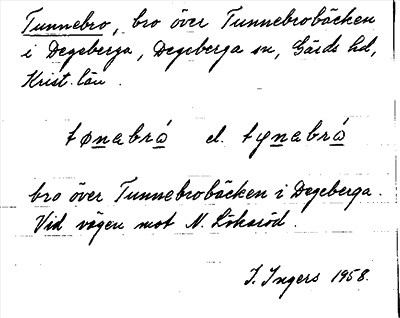 Tunnebro, bro över Tunnebrobäcken
i Degeberga, Degeberga sn, Gärds hd,
Krist. län.
tønabrá el. tynabrá
bro över Tunnebrobäcken i Degeberga.
Vid vägen mot N. Lökaröd.
I. Ingers 1958.